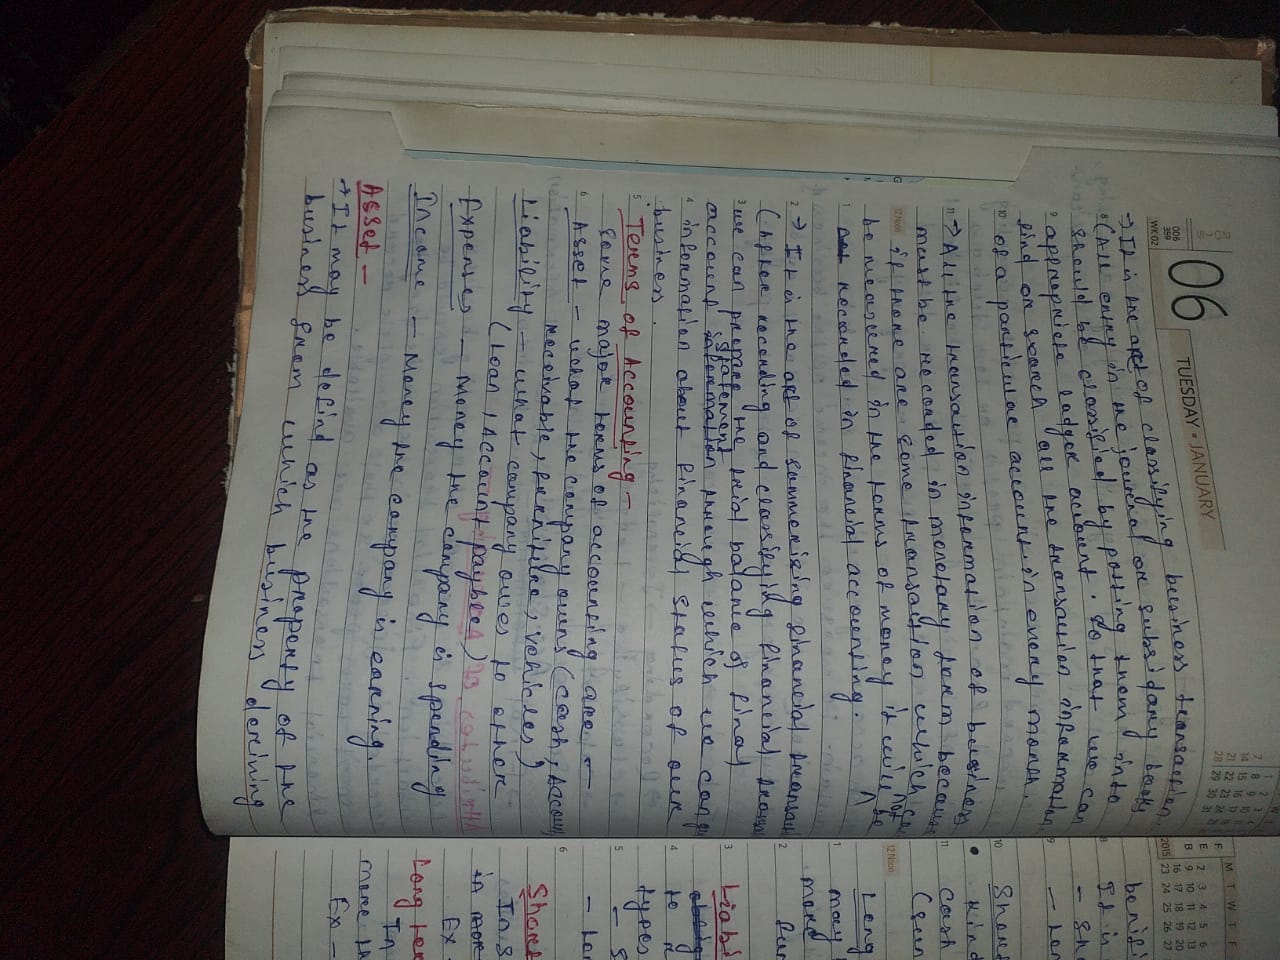 2015
006
359
WK 02
06
TUESDAY • JANUARY
→ It is the art of classifying business transaction.
8 (All entry in the journal or subsidary books
should be classified by posting them into
9 appropriate ladger account. So that we can
find or search all the transaction information
10 of a particular account in every month.
11 → All the transaction information of bussiness
must be recorded in monetary form because
12 Noon if there are some transaction which
be measured in the terms of money it will not be
1 recorded in financial accounting.
2 → It is the art of summerizing financial
(After recording and classifying financial
3 we can prepare the trial balance of final
account statement through which we can
4 information about financial status of our
business.
5 Terms of Accounting -
Some major terms of accounting are -
6 Asset - what the company owns (cash, Account
receivable, furniture, vehicles)
Liability - what company owes to other
(Loan, Account payble)
Expenses - Money the company is spending
Income - Money the company is earning.
Asset -
→ It may be defind as the property of the
business from which business dereining
M T W T F
F
E 2 3 4 5 6
B 9 10 11 12 13
16 17 18 19 20
2015 23 24 25 26 27
8 It is
9
10
• Kind
11 Cash
12 Noon
Long
1 may
more
2
3
4 to
types
5
6
In
Ex -
Long
In
more
Ex -